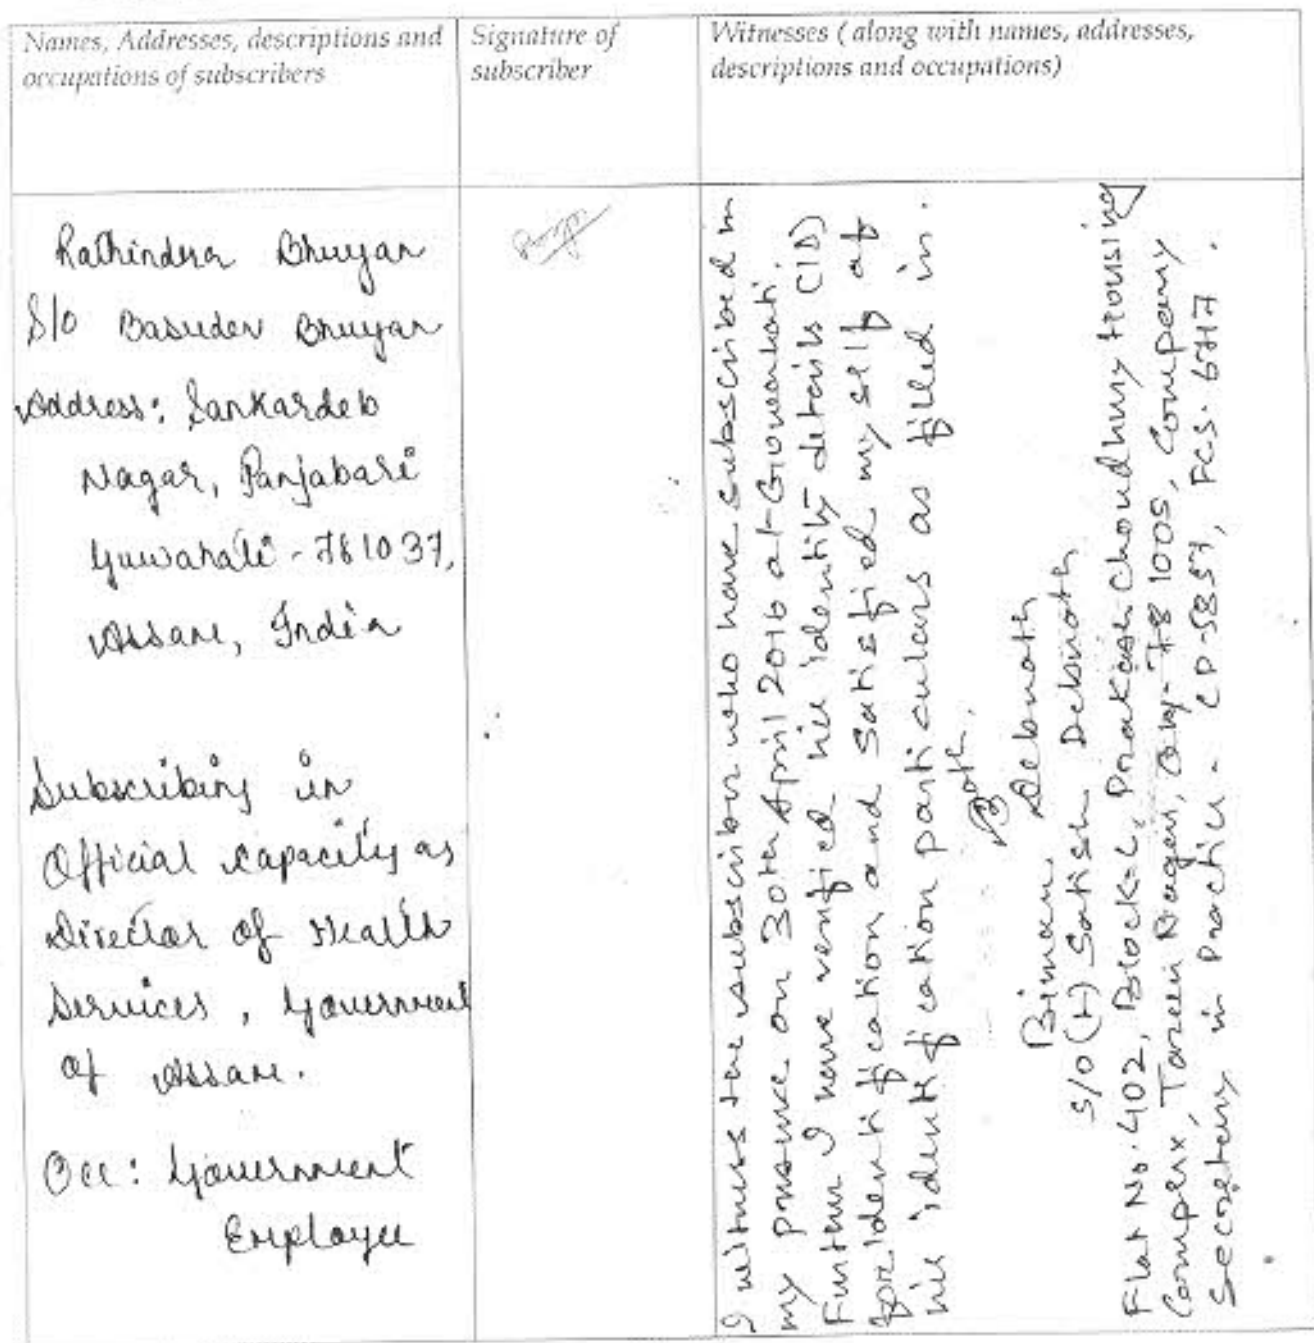 Names, Addresses, descriptions and
occupations of subscribers
Signature of
subscriber
Witnesses ( along with names, addresses,
descriptions and occupations)
Rathindra Bhuyan
S/o Basudev Bhuyan
Address: Sankardeb
Nagar, Panjabari
Guwahati - 781037,
Assam, India
Subscribing in
Official capacity as
Director of Health
Services, Government
of Assam.
Occ: Government
Employee
I witness the subscriber who have subscribed in
my presence on 30th April 2016 at Guwahati.
Further I have verified his identity details (ID)
for identification and satisfied my self of
his identification particulars as filled in.
Biman Debnath
S/o (L) Satish Debnath
Flat No. 402, Block-C, Prakash Choudhury Housing
Complex, Tarun Nagar, Ghy-781005, Company
Secretary in Practice - CP-5857, FCS. 6717.